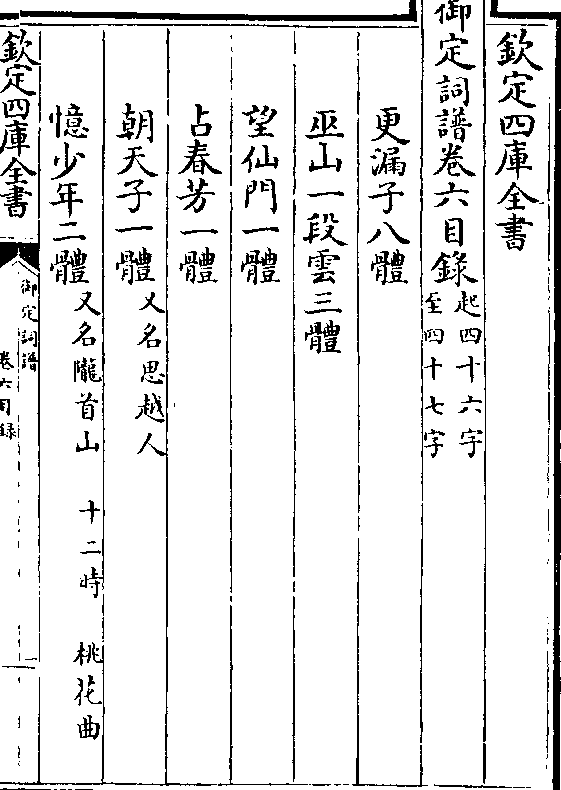 欽定四庫全書
御定詞譜卷六目錄起四十六字至四十七字
更漏子八體
巫山一段雲三體
望仙門一體
占春芳一體
朝天子一體又名思越人
憶少年二體又名隴首山 十二時 桃花曲
欽定四庫全書
御定詞譜
卷六目錄
一